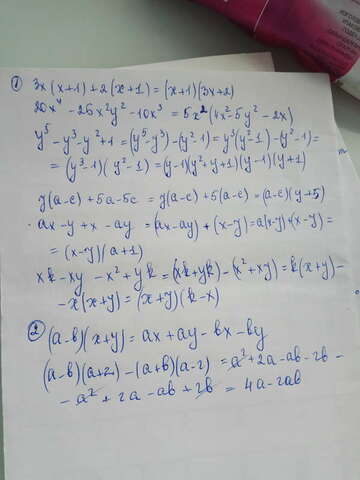 ① 3x(x+1)+2(x+1)=(x+1)(3x+2)
20x⁴-25x²y²-10x³=5x²(4x²-5y²-2x)
y⁵-y³-y²+1=(y⁵-y³)-(y²-1)=y³(y²-1)-(y²-1)=
=(y³-1)(y²-1)=(y-1)(y²+y+1)(y-1)(y+1)
y(a-c)+5a-5c=y(a-c)+5(a-c)=(a-c)(y+5)
ax-y+x-ay=(ax-ay)+(x-y)=a(x-y)+(x-y)=
=(x-y)(a+1)
xk-xy-x²+yk=(xk+yk)-(x²+xy)=k(x+y)-
-x(x+y)=(x+y)(k-x)
② (a-b)(x+y)=ax+ay-bx-by
(a-b)(a+2)-(a+b)(a-2)=a²+2a-ab-2b-
-a²+2a-ab+2b=4a-2ab